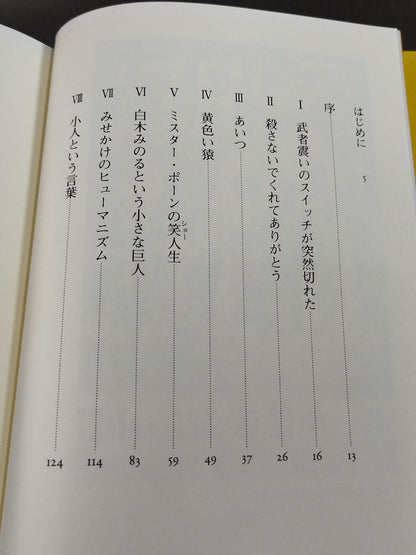 はじめに 5
序 13
Ⅰ 武者震いのスイッチが突然切れた 16
Ⅱ 殺さないでくれてありがとう 26
Ⅲ あいつ 37
Ⅳ 黄色い猿 49
Ⅴ ミスター・ポーンの笑人生 59
ショー
Ⅵ 白木みのるという小さな巨人 83
Ⅶ みせかけのヒューマニズム 114
Ⅷ 小人という言葉 124